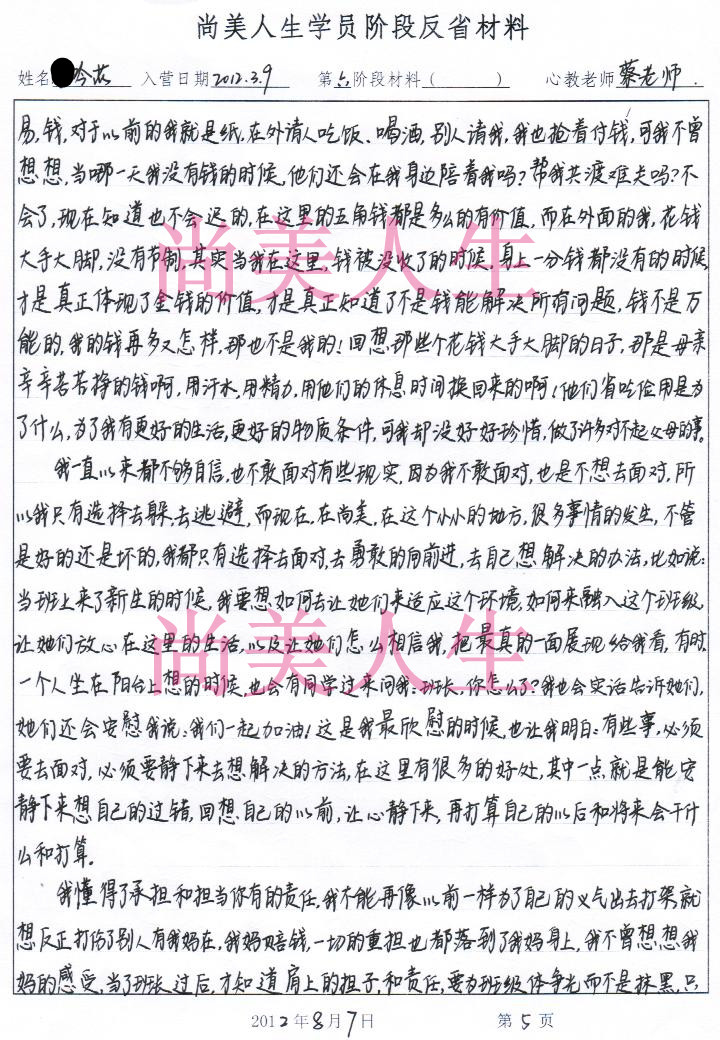 尚美人生学员阶段反省材料
姓名 岑芯 入营日期2012.3.9 第六阶段材料( ) 心教老师 蔡老师.
易,钱,对于以前的我就是纸,在外请人吃饭、喝酒,别人请我,我也抢着付钱,可我不曾
想想,当哪一天我没有钱的时候,他们还会在我身边陪着我吗?帮我共渡难关吗?不
会了,现在知道也不会迟的,在这里的五角钱都是多么的有价值,而在外面的我,花钱
大手大脚,没有节制,其实当我在这里,钱被没收了的时候,身上一分钱都没有的时候,
才是真正体现了金钱的价值,才是真正知道了不是钱能解决所有问题,钱不是万
能的,我的钱再多又怎样,那也不是我的!回想那些个花钱大手大脚的日子,那是母亲
辛辛苦苦挣的钱啊,用汗水,用精力,用他们的休息时间换回来的啊!他们省吃俭用是为
了什么,为了我有更好的生活,更好的物质条件,可我却没好好珍惜,做了许多对不起父母的事。
我一直以来都不够自信,也不敢面对有些现实,因为我不敢面对,也是不想去面对,所
以我只有选择去躲,去逃避,而现在,在尚美,在这个小小的地方,很多事情的发生,不管
是好的还是坏的,我都只有选择去面对,去勇敢的向前进,去自己想解决的办法,比如说:
当班上来了新生的时候,我要想如何去让她们来适应这个环境,如何来融入这个班级,
让她们放心在这里的生活,以及让她们怎么相信我,把最真的一面展现给我看,有时,
一个人坐在阳台上想的时候,也会有同学过来问我:班长,你怎么了?我也会实话告诉她们,
她们还会安慰我说:我们一起加油!这是我最欣慰的时候,也让我明白:有些事,必须
要去面对,必须要静下来去想解决的方法,在这里有很多的好处,其中一点就是能安
静下来想自己的过错,回想自己的以前,让心静下来,再打算自己的以后和将来会干什
么和打算。
我懂得了承担和担当你有的责任,我不能再像以前一样为了自己的义气出去打架,就
想反正打伤了别人有我妈在,我妈赔钱,一切的重担也都落到了我妈身上,我不曾想想我
妈的感受,当了班长过后,才知道肩上的担子,和责任,要为班级体争光而不是抹黑,只
2012年8月7日 第5页
尚美人生
尚美人生